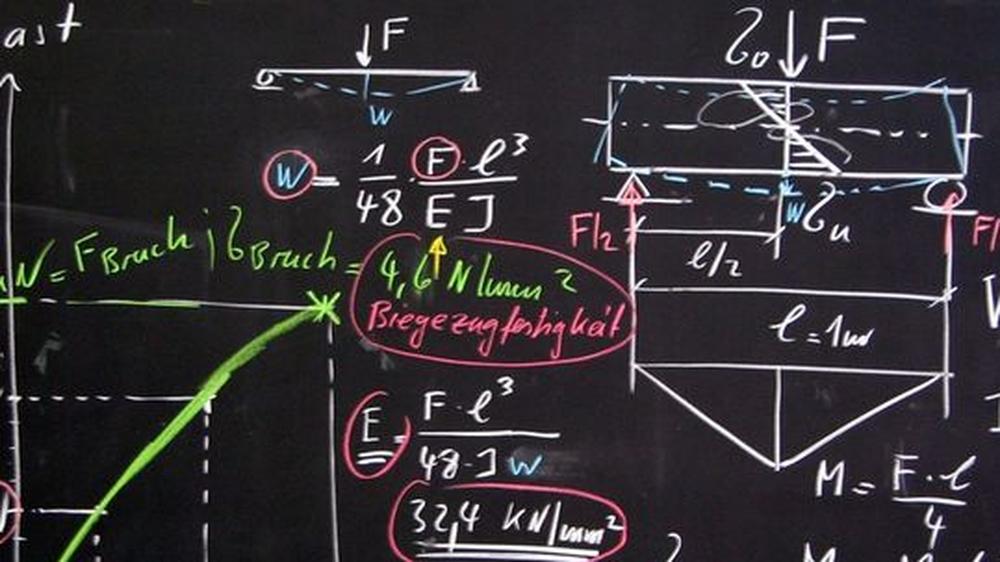 ast
F
w
w = 1/48 · F · l³ / E J
N = FBruch ; σBruch = 4,6 N/mm²
Biegezugfestigkeit
E = F · l³ / 48 · J w
32,4 KN/mm²
σo F
w σu
F/2
F/
l/2
l = 1m
M = F · l / 4